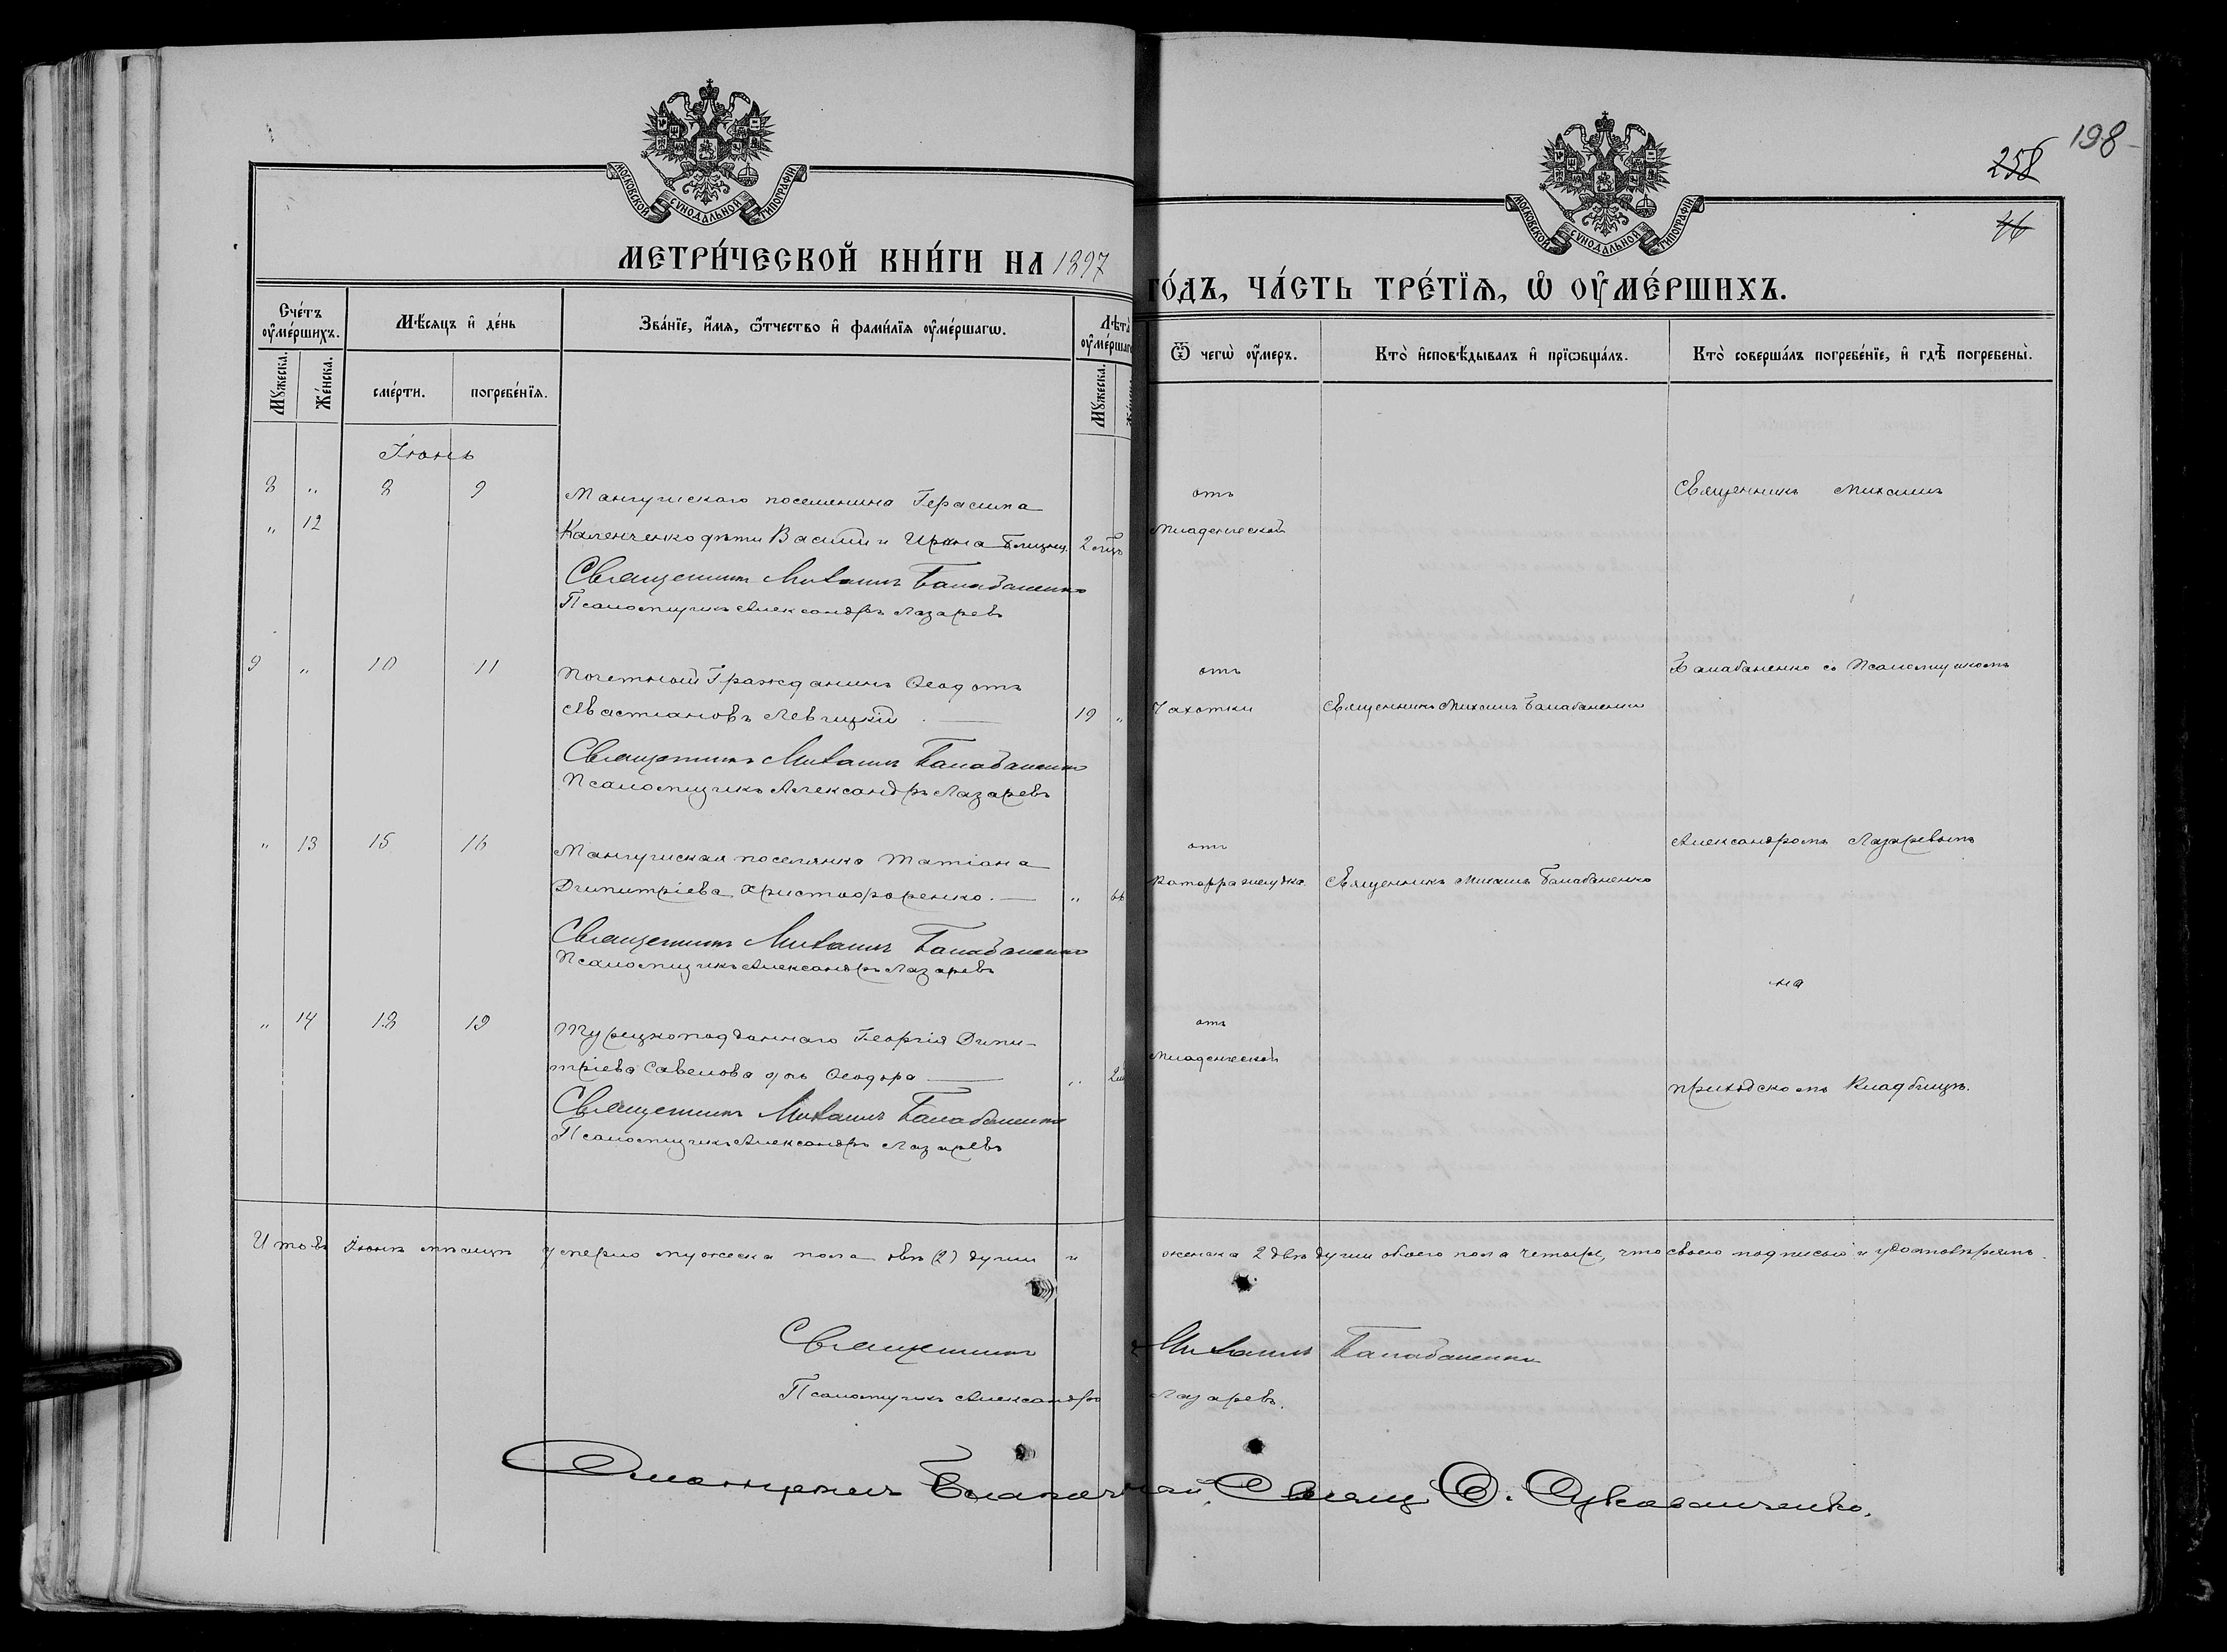 МОСКОВСКОЙ СѴНОДАЛЬНОЙ ТИПОГРАФІИ
МЕТРИ́ЧЕСКОЙ КНИ́ГИ НА 1897
Сче́тъ ᲂу҆ме́ршихъ.
Мꙋ́жеска.
Же́нска.
Мѣ́сяцъ и҆ де́нь
сме́рти.
погребе́нїѧ.
Зва́нїе, и҆́мѧ, ѻ҆́тчество и҆ фами́лїѧ ᲂу҆ме́ршагѡ.
Лѣта̀ ᲂу҆ме́ршаг
Мꙋ́жеска.
Іюнь
8 " 8 9 Мангушскаго поселянина Герасима
" 12 Каленченко дѣти Василій и Ирина близнец. 2 мц
Священникъ Михаилъ Балабаненко
Псаломщикъ Александръ Лазаревъ
9 " 10 11 Почетный Гражданинъ Ѳеодотъ
Авастіановъ Левицкій 19 "
Священникъ Михаилъ Балабаненко
Псаломщикъ Александръ Лазаревъ
" 13 15 16 Мангушская поселянка Татіана
Димитріева Христофоренко. "
Священникъ Михаилъ Балабаненко
Псаломщикъ Александръ Лазаревъ
" 14 18 19 Турецкоподданнаго Георгія Дими-
тріева Савелова дчь Ѳеодора "
Священникъ Михаилъ Балабаненко
Псаломщикъ Александръ Лазаревъ
Итого въ Іюнѣ мѣсяцѣ умерло мужеска пола двѣ (2) души и
Священникъ
Псаломщикъ Александръ
198
258
46
МОСКОВСКОЙ СѴНОДАЛЬНОЙ ТИПОГРАФІИ
ГО́ДЪ, ЧА́СТЬ ТРЕ́ТЇѦ, Ѡ҆ ОУ҆МЕ́РШИХЪ.
Ѿ чегѡ̀ ᲂу҆́меръ.
Кто̀ и҆сповѣ́дывалъ и҆ прїѡбща́лъ.
Кто̀ соверша́лъ погребе́нїе, и҆ гдѣ̀ погребены̀.
отъ Священникъ Михаилъ
Младенческой
отъ Балабаненко съ Псаломщикомъ
Чахотки Священникъ Михаилъ Балабаненко
отъ Александромъ Лазаревымъ
Катарра желудка. Священникъ Михаилъ Балабаненко
на
отъ
Младенческой
приходскомъ Кладбищѣ.
женска 2 двѣ души обоего пола четыре, что своею подписью и удостовѣряемъ.
Михаилъ Балабаненко
Лазаревъ.
Благочинный Свящ. Ѳ.